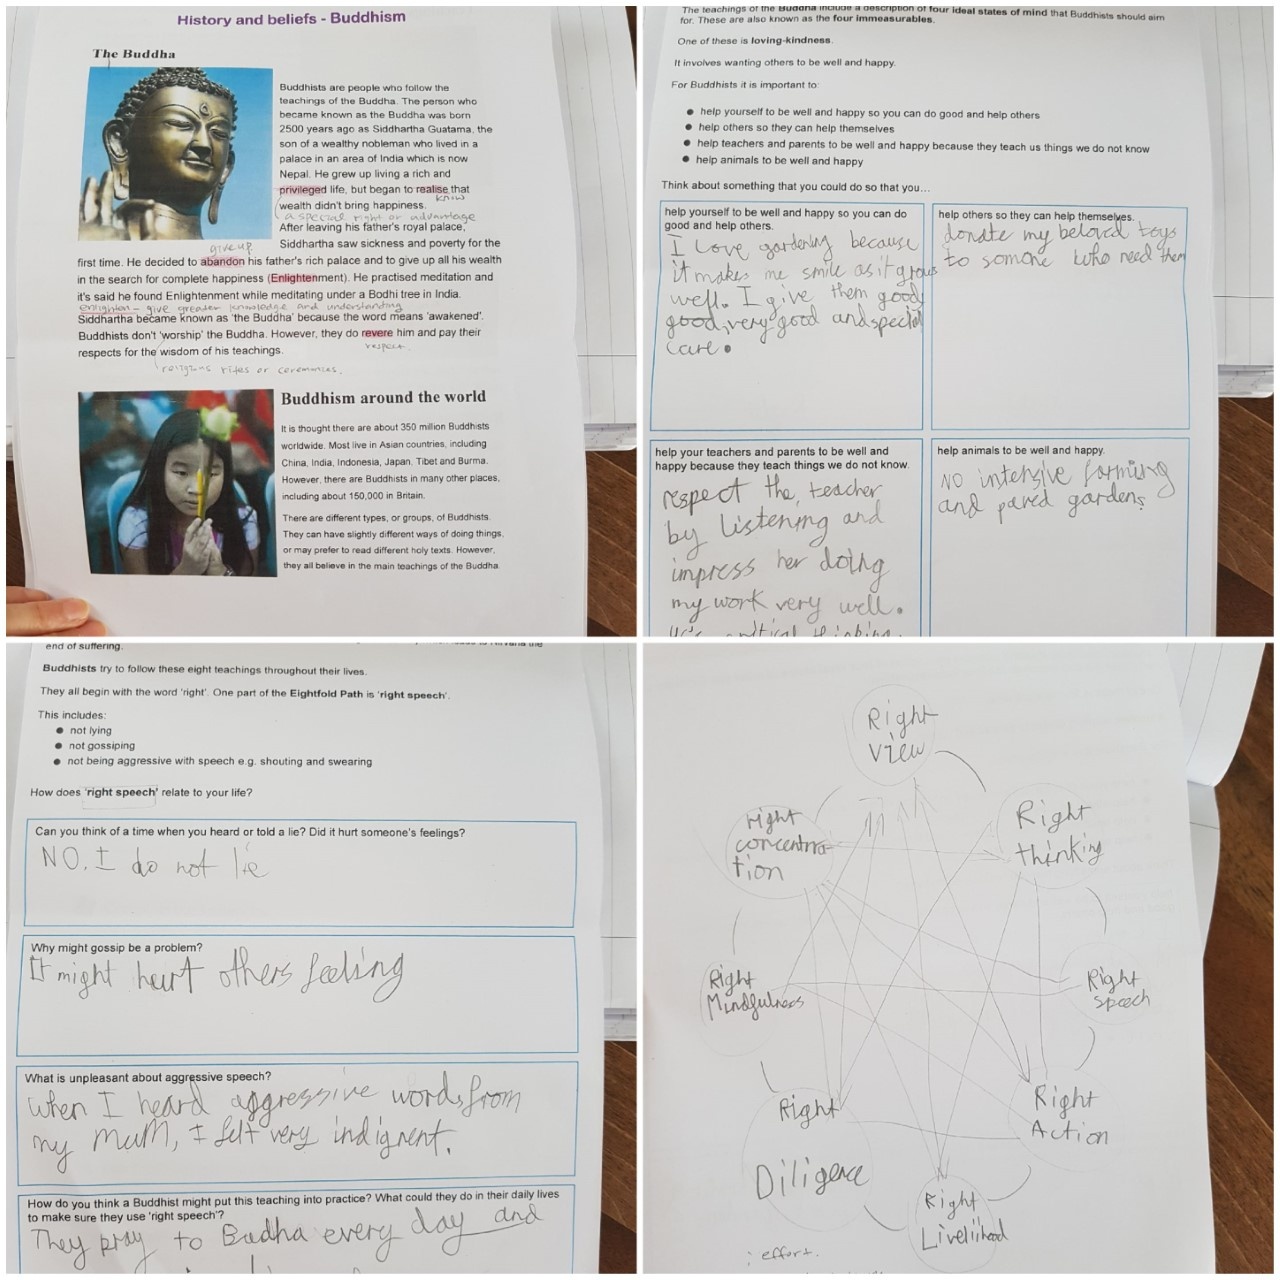 History and beliefs - Buddhism
The Buddha
Buddhists are people who follow the
teachings of the Buddha. The person who
became known as the Buddha was born
2500 years ago as Siddhartha Guatama, the
son of a wealthy nobleman who lived in a
palace in an area of India which is now
Nepal. He grew up living a rich and
privileged life, but began to realise that
know
wealth didn't bring happiness.
a special right or advantage
After leaving his father's royal palace,
Siddhartha saw sickness and poverty for the
give up
first time. He decided to abandon his father's rich palace and to give up all his wealth
in the search for complete happiness (Enlightenment). He practised meditation and
it's said he found Enlightenment while meditating under a Bodhi tree in India.
enlighten - give greater knowledge and understanding
Siddhartha became known as 'the Buddha' because the word means 'awakened'.
Buddhists don't 'worship' the Buddha. However, they do revere him and pay their
respect
respects for the wisdom of his teachings.
religious rites or ceremonies.
Buddhism around the world
It is thought there are about 350 million Buddhists
worldwide. Most live in Asian countries, including
China, India, Indonesia, Japan, Tibet and Burma.
However, there are Buddhists in many other places,
including about 150,000 in Britain.
There are different types, or groups, of Buddhists.
They can have slightly different ways of doing things,
or may prefer to read different holy texts. However,
they all believe in the main teachings of the Buddha.
The teachings of the Buddha include a description of four ideal states of mind that Buddhists should aim
for. These are also known as the four immeasurables.
One of these is loving-kindness.
It involves wanting others to be well and happy.
For Buddhists it is important to:
help yourself to be well and happy so you can do good and help others
help others so they can help themselves
help teachers and parents to be well and happy because they teach us things we do not know
help animals to be well and happy
Think about something that you could do so that you...
help yourself to be well and happy so you can do
good and help others.
I love gardening because
it makes me smile as it grows
well. I give them good
good, very good and special
care.
help others so they can help themselves.
donate my beloved toys
to somone who need them
help your teachers and parents to be well and
happy because they teach things we do not know.
respect the teacher
by listening and
impress her doing
my work very well.
critical thinking.
help animals to be well and happy.
NO intensive farming
and paved gardens
end of suffering.
Buddhists try to follow these eight teachings throughout their lives.
They all begin with the word 'right'. One part of the Eightfold Path is 'right speech'.
This includes:
not lying
not gossiping
not being aggressive with speech e.g. shouting and swearing
How does 'right speech' relate to your life?
Can you think of a time when you heard or told a lie? Did it hurt someone's feelings?
NO, I do not lie
Why might gossip be a problem?
It might hurt others feeling
What is unpleasant about aggressive speech?
when I heard aggressive words from
my mum, I felt very indignent.
How do you think a Buddhist might put this teaching into practice? What could they do in their daily lives
to make sure they use 'right speech'?
They pray to Budha every day and
Right
view
Right
thinking
Right
speech
Right
Action
Right
Liveliihood
Right
Diligence
: effort.
Right
Mindfulness
right
concentra-
tion